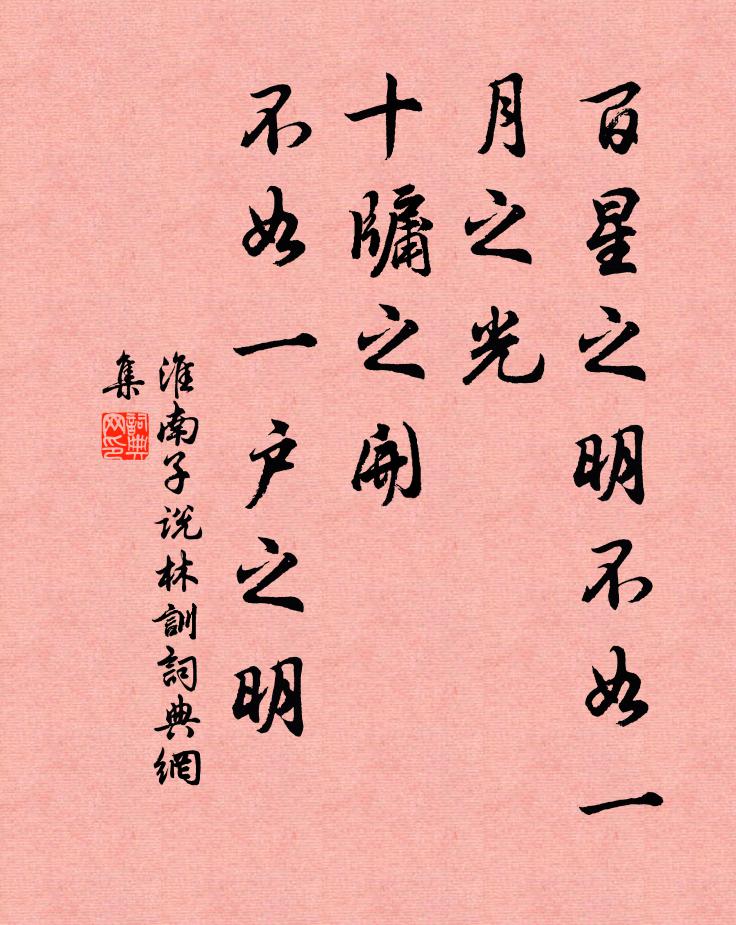 百星之明不如一
月之光
十牖之開
不如一户之明
淮南子说林訓詞典網
集
詞典
网印